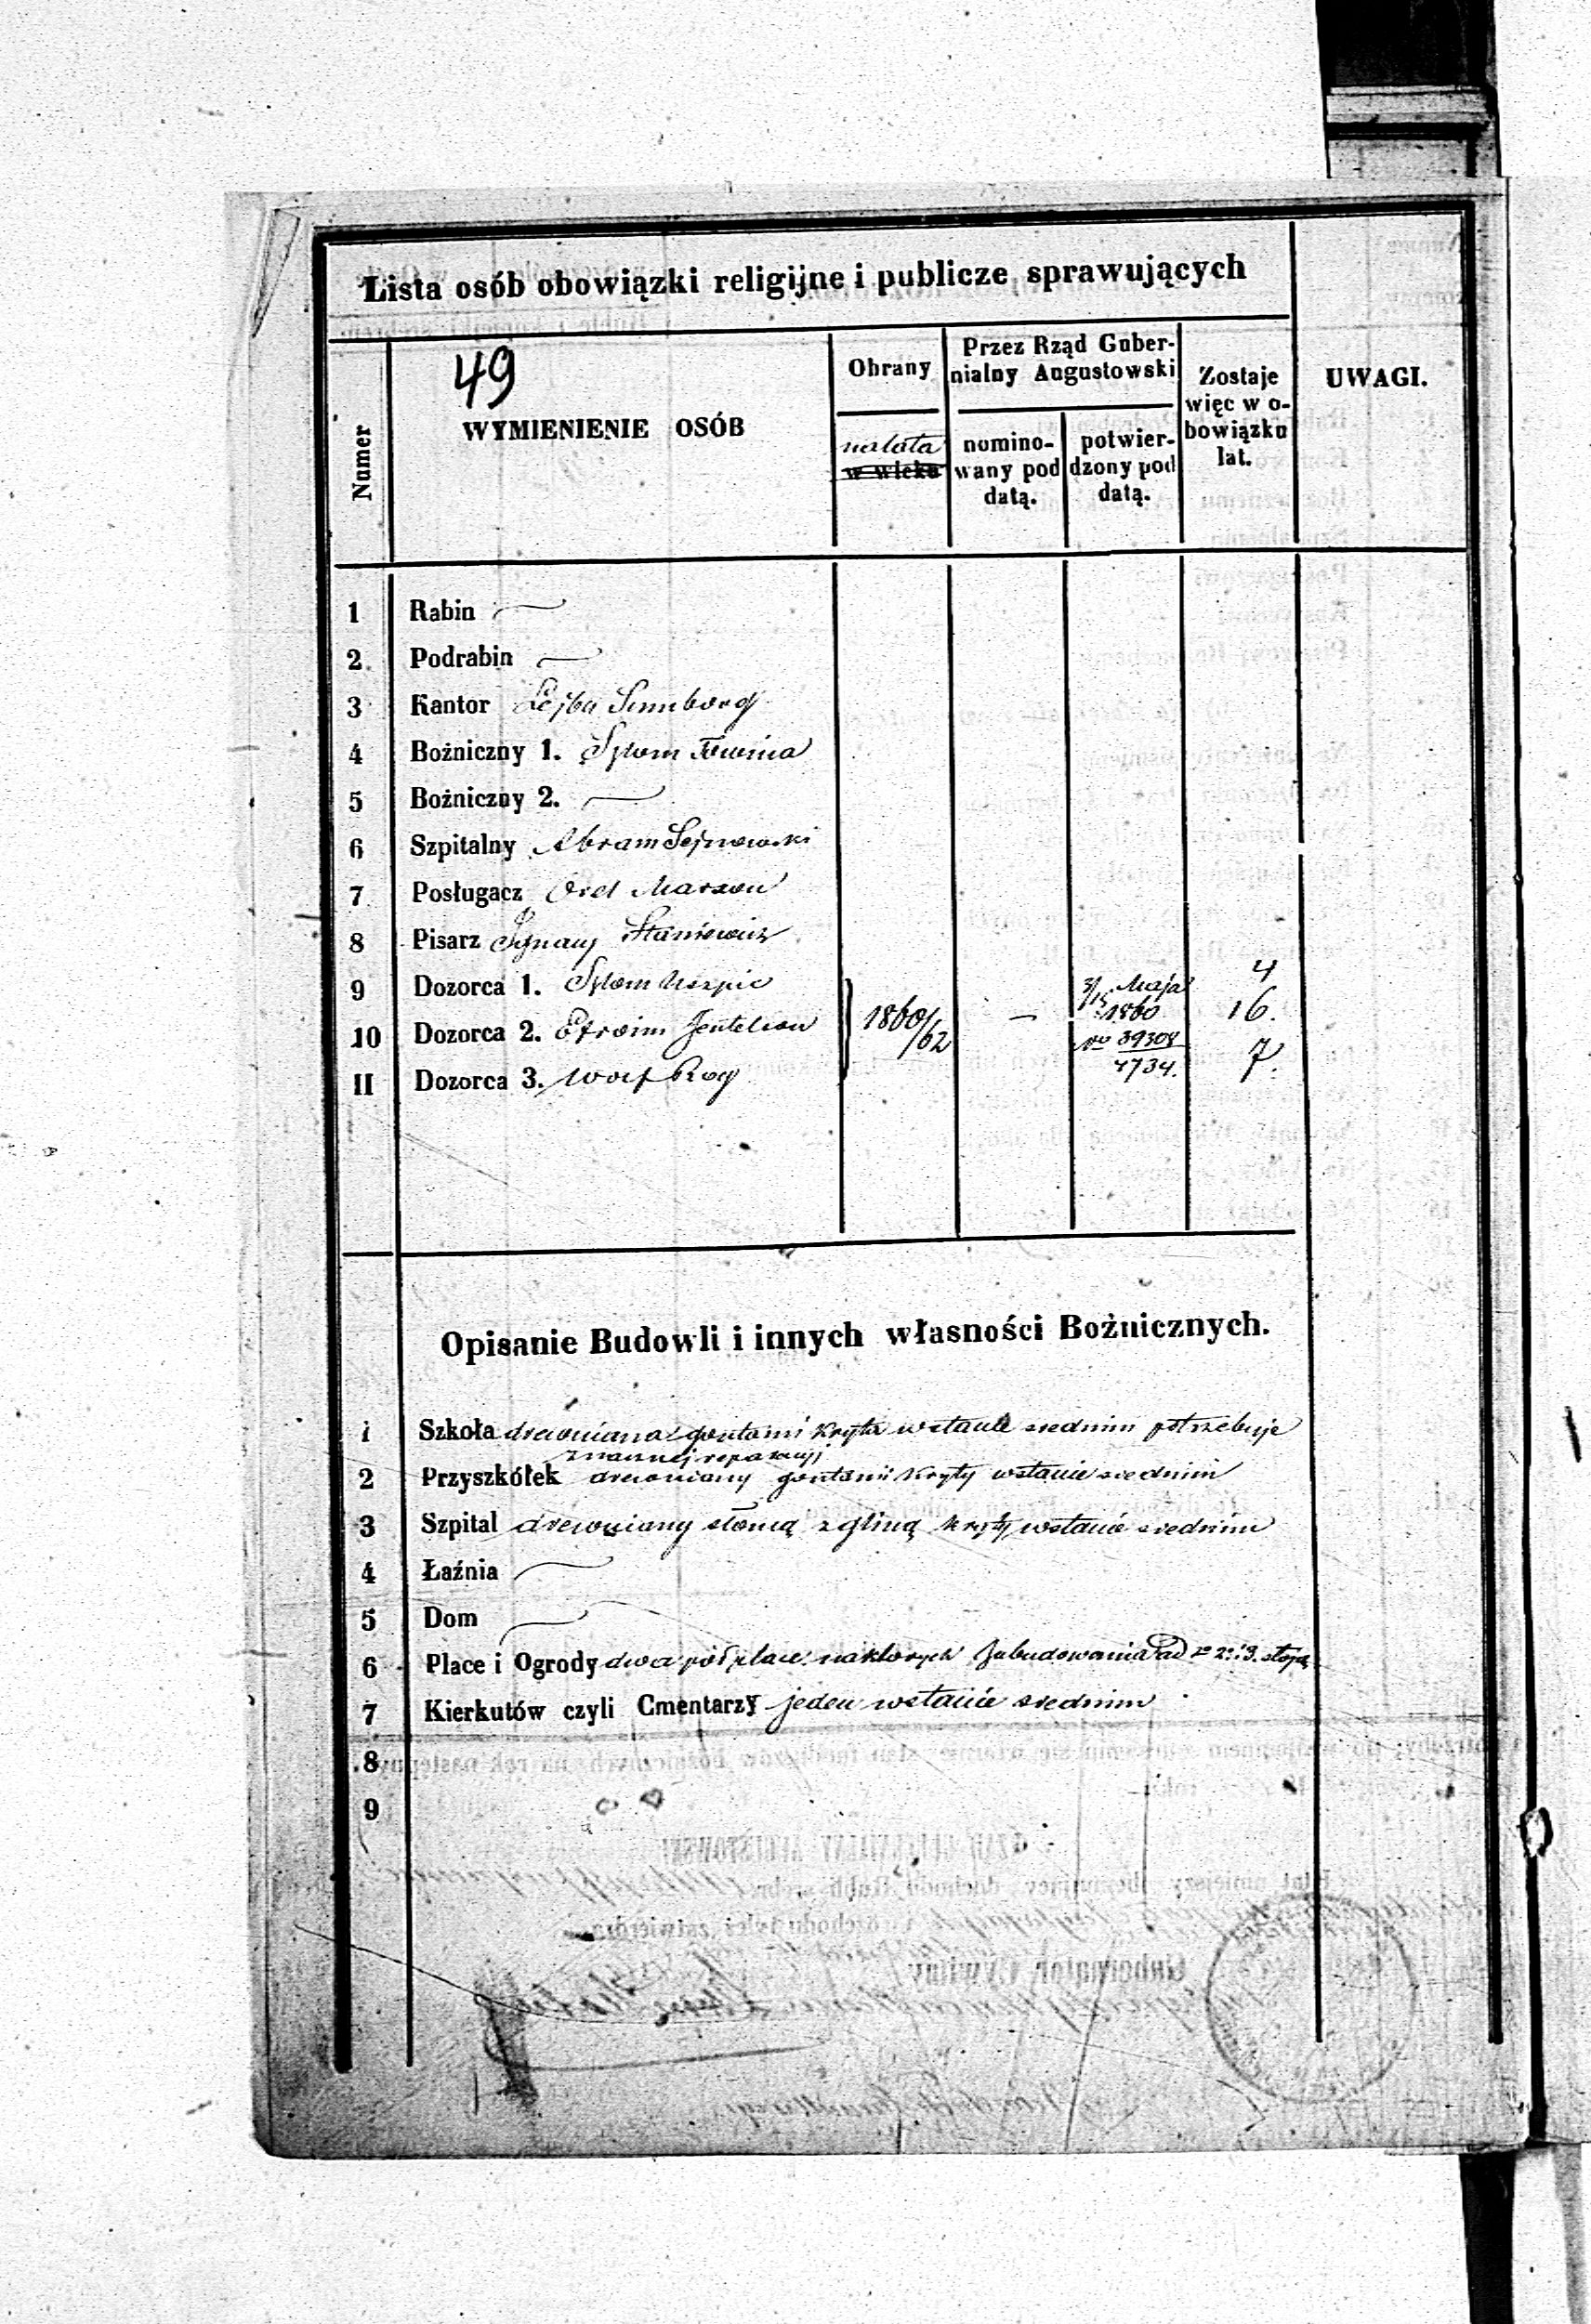 Lista osób obowiązki religijne i publicze sprawujących
49
Numer
WYMIENIENIE OSÓB
Obrany
na lata
w wieku
Przez Rząd Guber-
nialny Augustowski
nomino-
wany pod
datą.
potwier-
dzony pod
datą.
Zostaje
więc w o-
bowiązku
lat.
UWAGI.
1 Rabin —
2 Podrabin —
3 Kantor Lejba
4 Bożniczny 1. Szlom
5 Bożniczny 2. —
6 Szpitalny Abram Sejnowski
7 Posługacz Orel
8 Pisarz Ignacy Staniewicz
9 Dozorca 1. Szlom 4
10 Dozorca 2. Efroim 1860/62 — 3/15 Maja 1860 16.
No 39308/4734.
11 Dozorca 3. Wolf Rog 7.
Opisanie Budowli i innych własności Bożnicznych.
1 Szkoła drewniana gontami kryta w stanie srednim potrzebuje
znacznej reparacyj
2 Przyszkółek drewniany gontami kryty w stanie srednim
3 Szpital drewniany słomą z gliną kryty w stanie srednim
4 Łaźnia —
5 Dom —
6 Place i Ogrody dwa pod place na ktorych Zabudowania ad No 2 i 3. stoją
7 Kierkutów czyli Cmentarzy jeden w stanie srednim
8
9